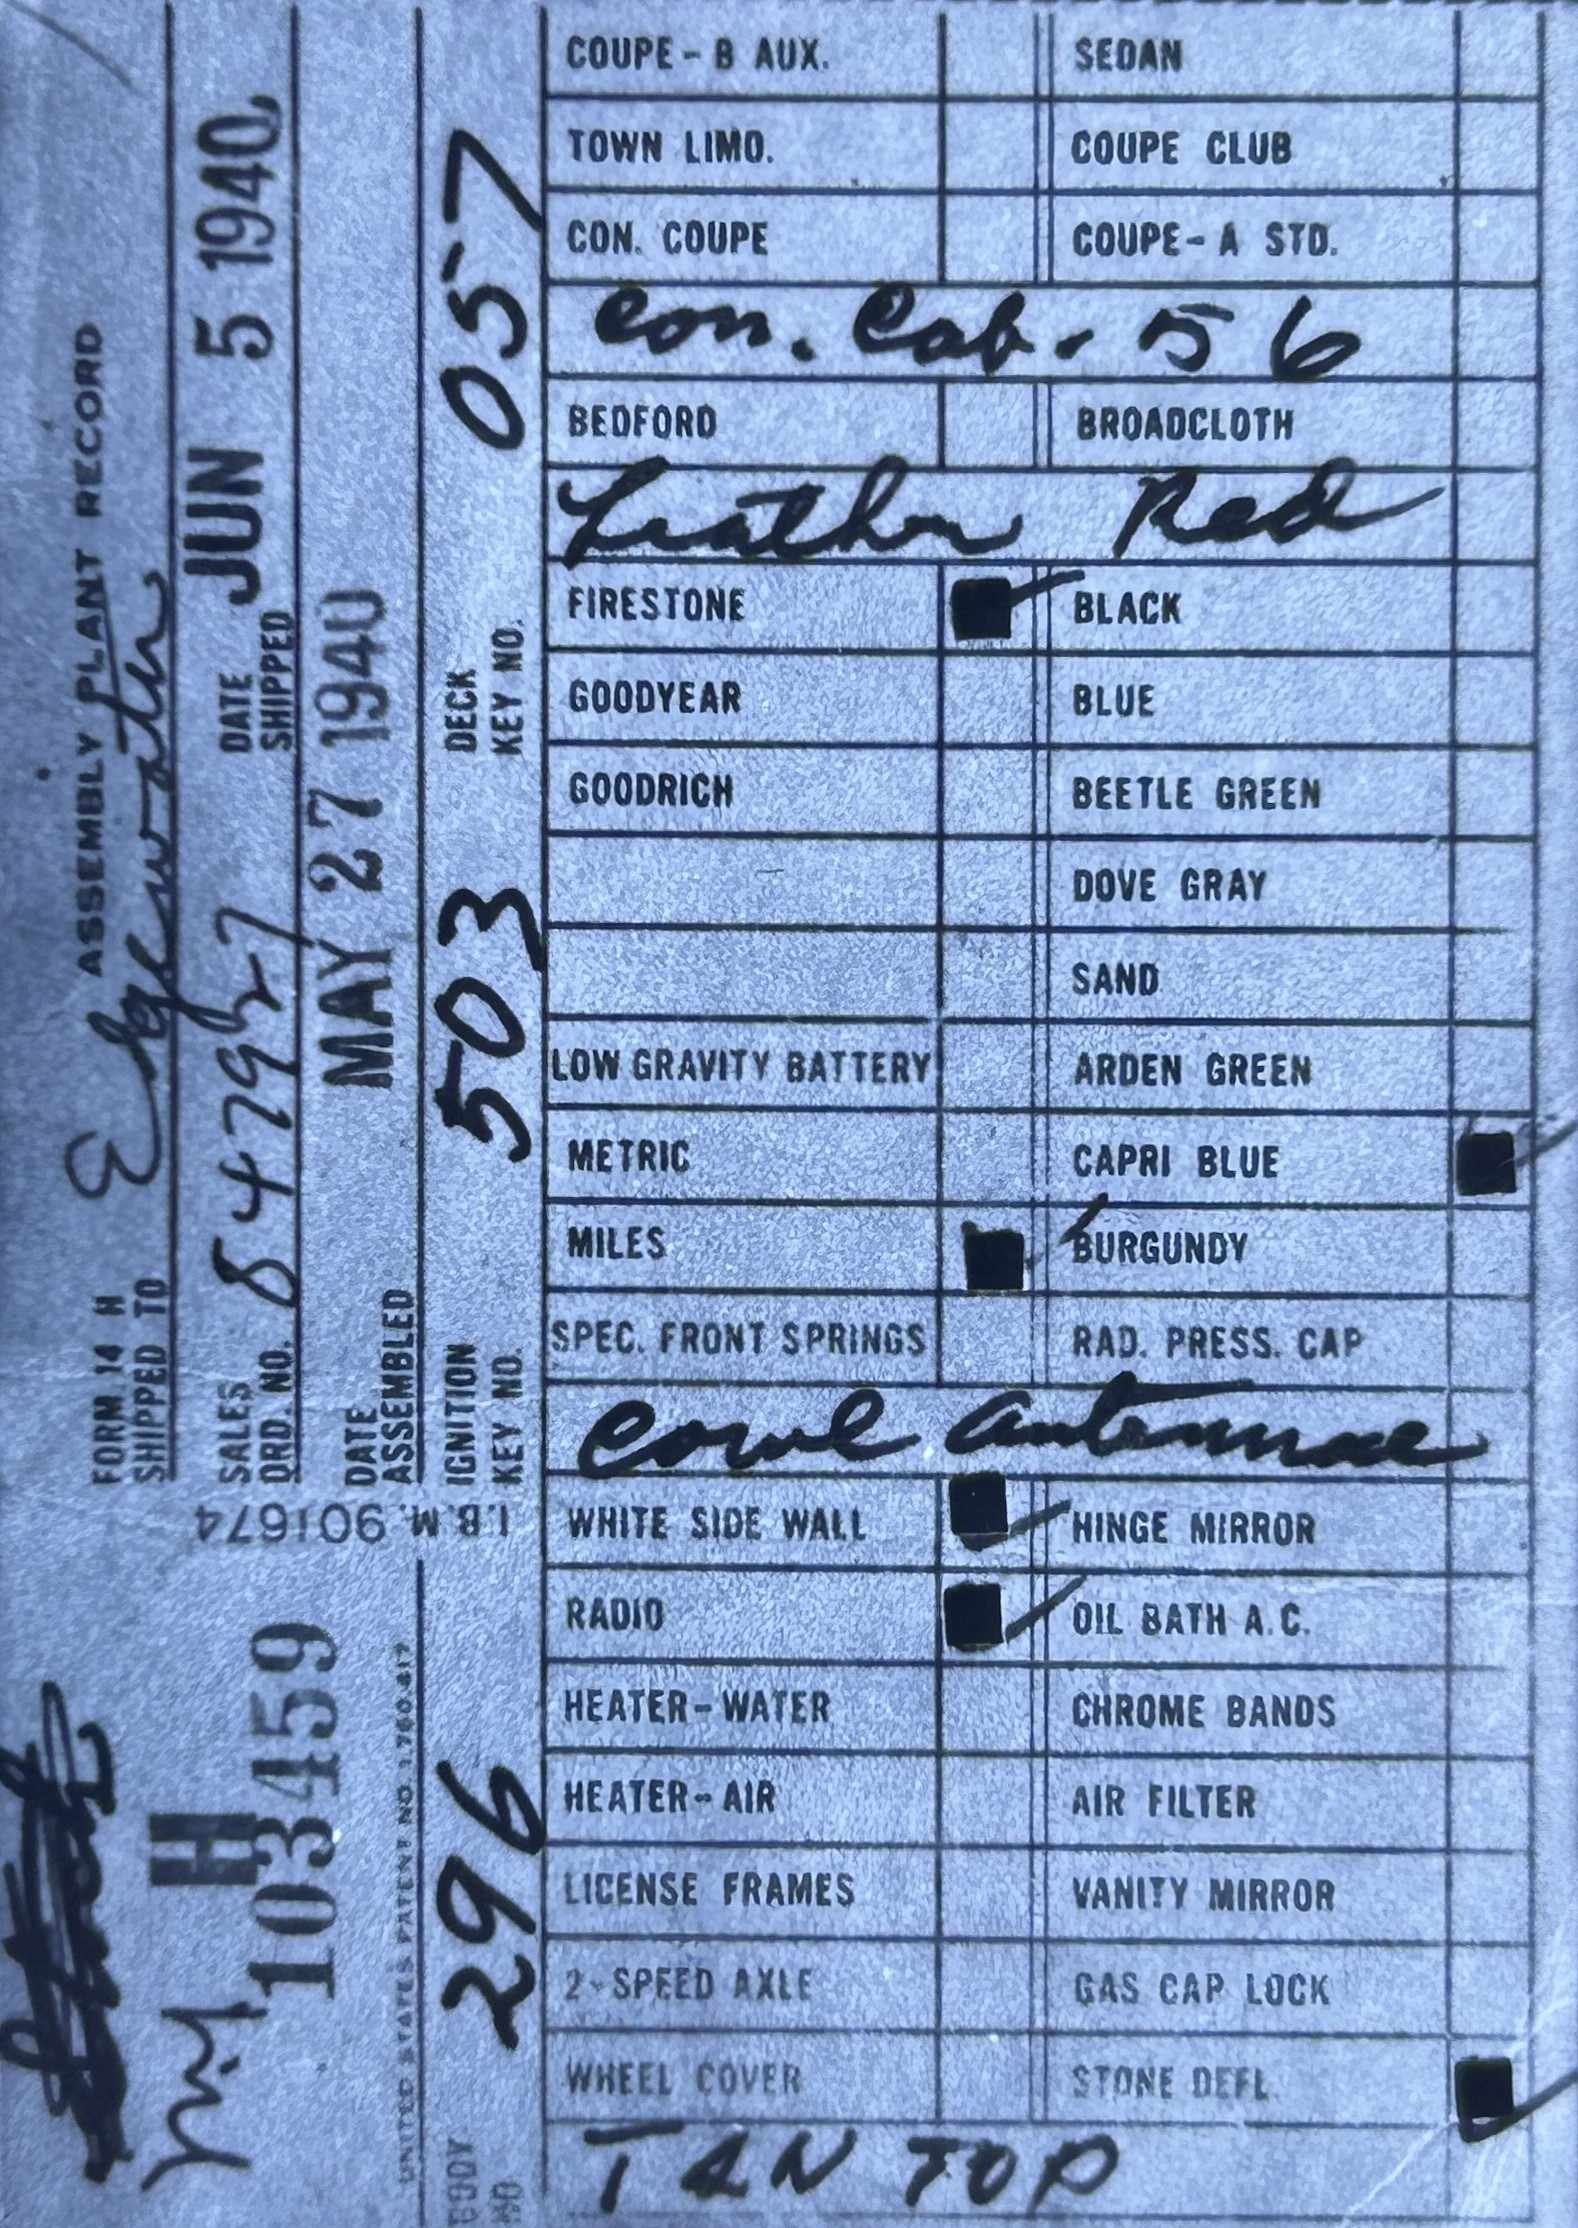 FORM 14 H ASSEMBLY PLANT RECORD
SHIPPED TO Edgewater
SALES ORD. NO. 847927 DATE SHIPPED JUN 5 1940
DATE ASSEMBLED MAY 27 1940
IGNITION KEY NO. 503 DECK KEY NO. 057
I.B.M. 901674
H
103459
UNITED STATES PATENT NO. 1,780,417
BODY NO 296
COUPE - B AUX. SEDAN
TOWN LIMO. COUPE CLUB
CON. COUPE COUPE - A STD.
Con. Cab. 56
BEDFORD BROADCLOTH
Leather Red
FIRESTONE BLACK
GOODYEAR BLUE
GOODRICH BEETLE GREEN
DOVE GRAY
SAND
LOW GRAVITY BATTERY ARDEN GREEN
METRIC CAPRI BLUE
MILES BURGUNDY
SPEC. FRONT SPRINGS RAD. PRESS. CAP
Cowl Antennae
WHITE SIDE WALL HINGE MIRROR
RADIO OIL BATH A.C.
HEATER-WATER CHROME BANDS
HEATER-AIR AIR FILTER
LICENSE FRAMES VANITY MIRROR
2-SPEED AXLE GAS CAP LOCK
WHEEL COVER STONE DEFL.
TAN TOP